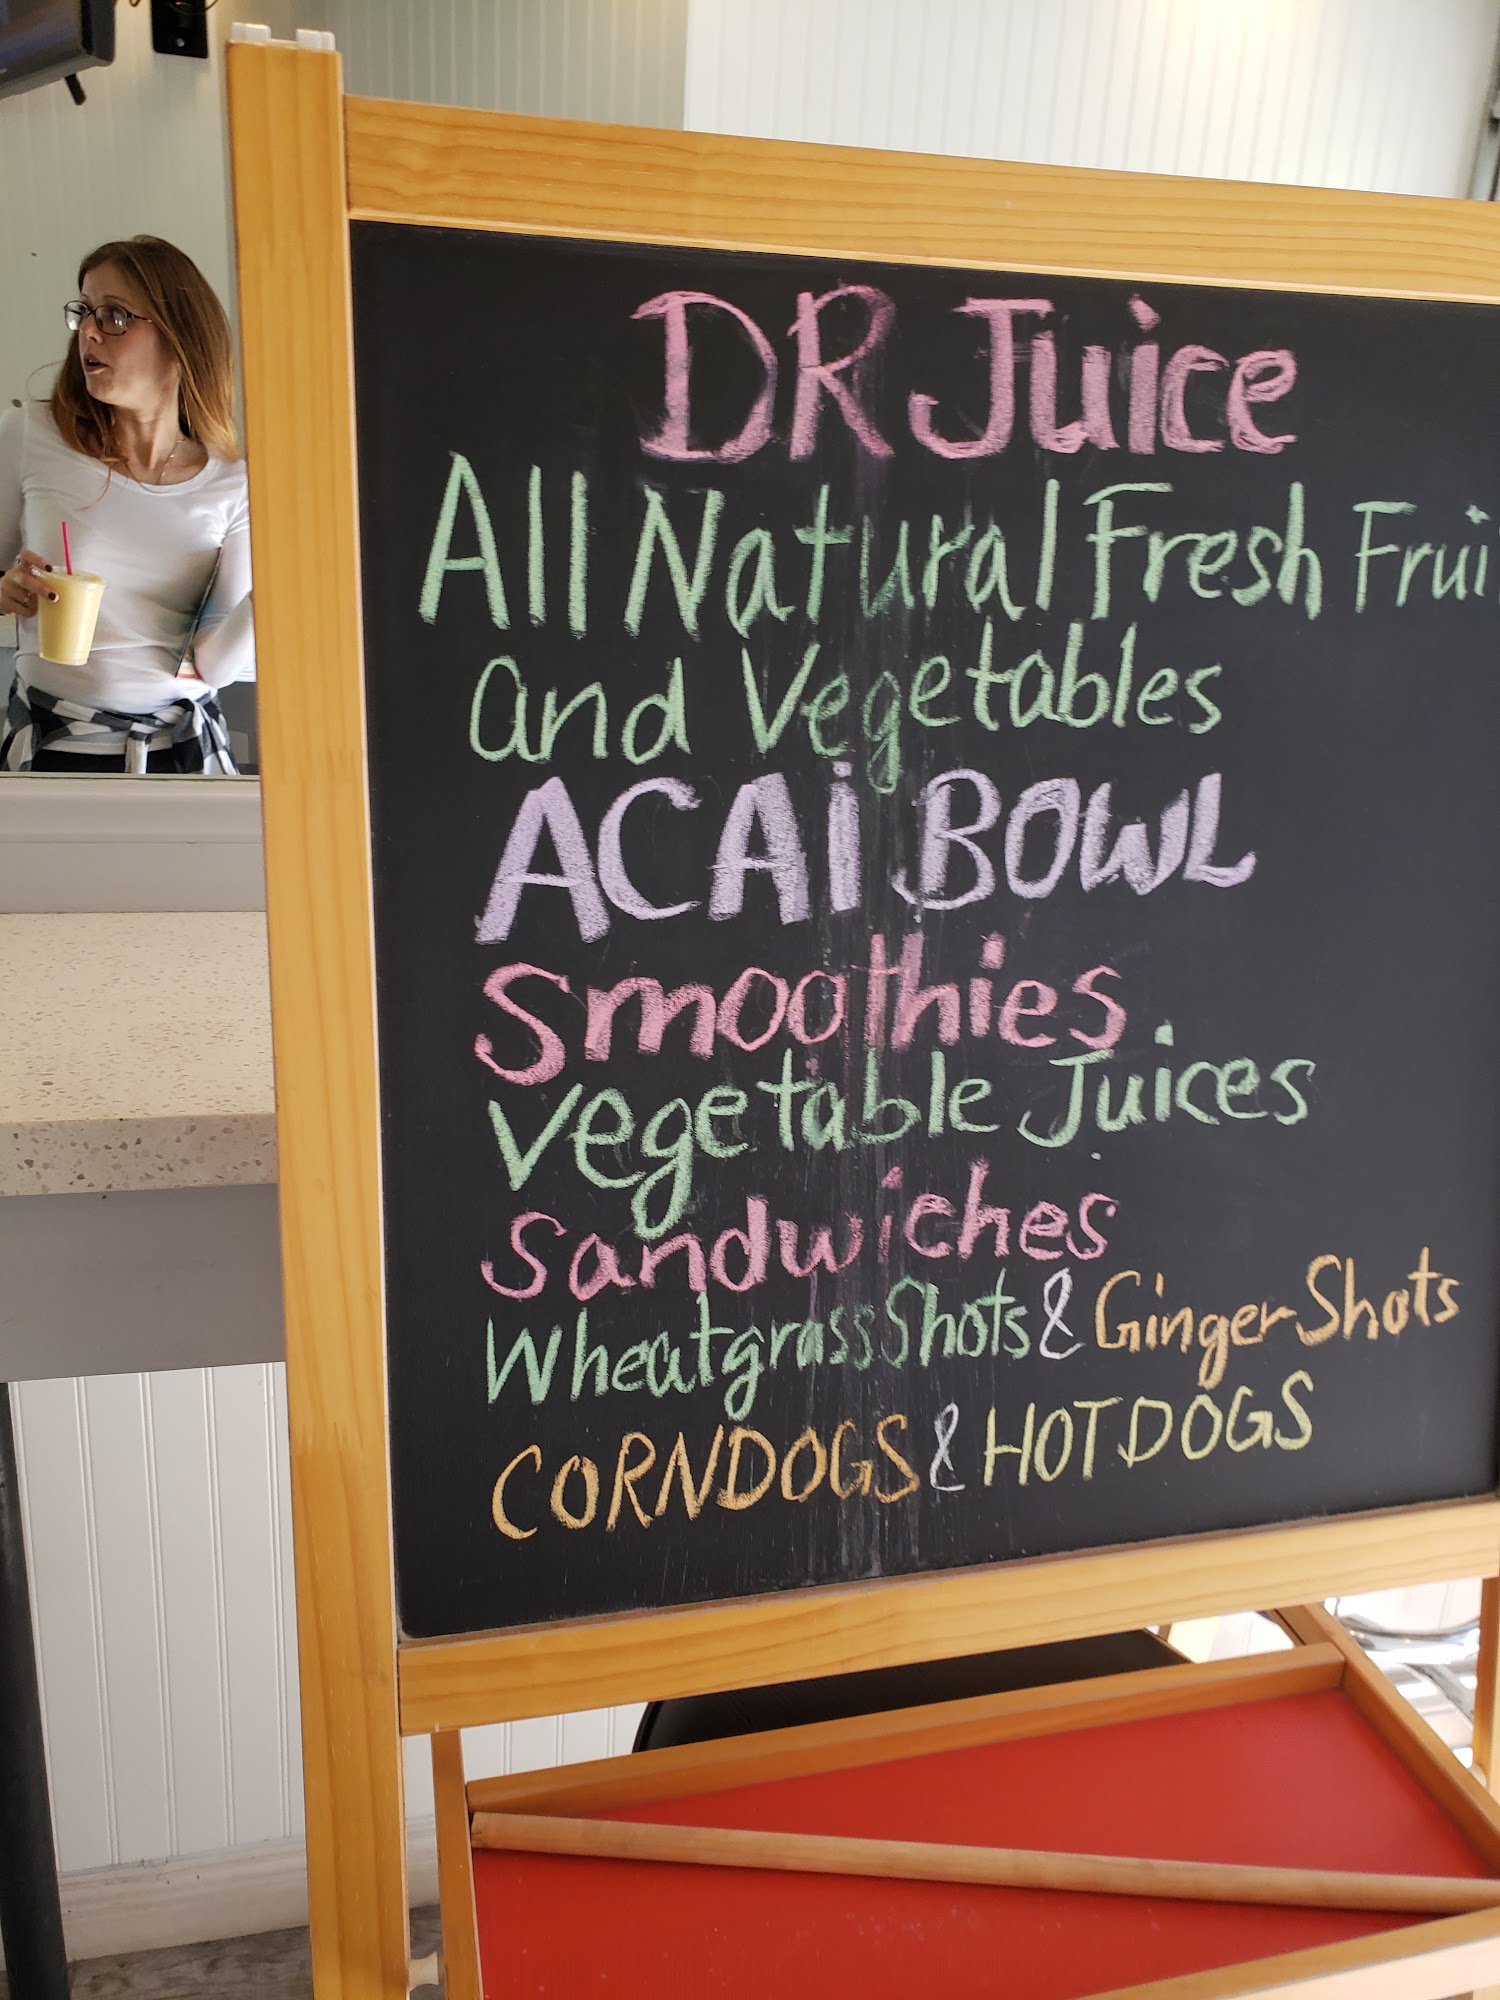 DR Juice
All Natural Fresh Frui
and Vegetables
ACAi BOWL
Smoothies
Vegetable Juices
Sandwiches
Wheatgrass Shots & Ginger Shots
CORNDOGS & HOTDOGS